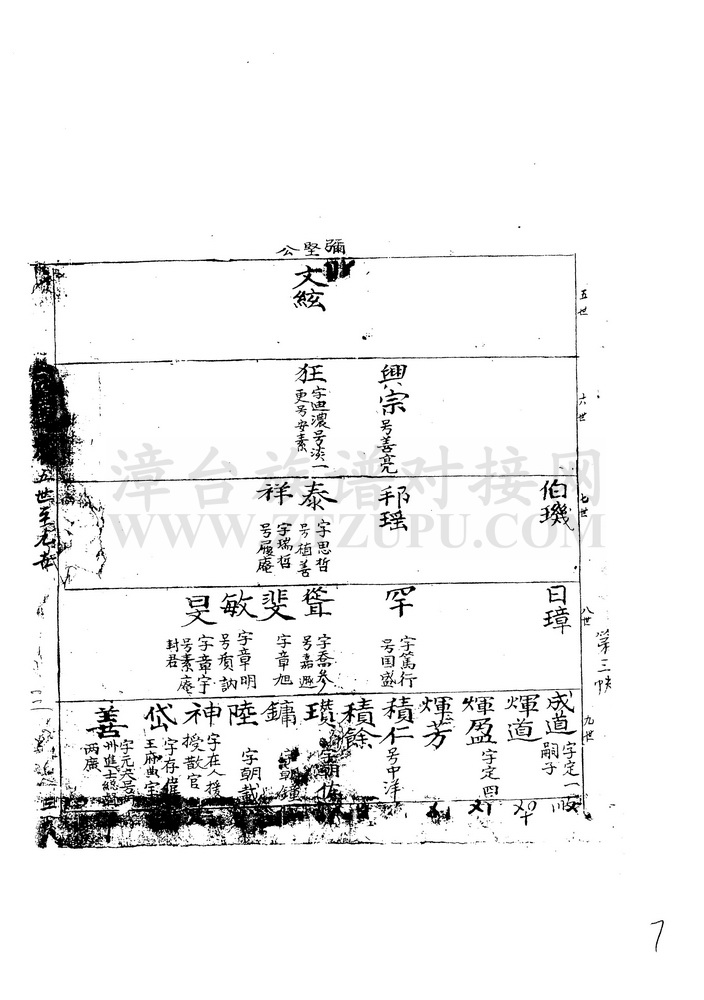 彌堅公
五世
文絃
六世
興宗
号善亮
狂
字思濃号淡一
更号安素
七世
伯璣
邦瑶
泰
字思哲
号植善
祥
字瑞哲
号履庵
八世
日璋
罕
字篤行
号国盛
聳
字喬参
号嘉遯
斐
字章旭
敏
字章明
号質訥
旻
字章宇
号素庵
封君
第三帙
九世
成道
字定一
嗣子
輝道
輝盈
字定四
輝芳
積仁
号中洋
積餘
瓚
鏞
陸
字朝載
神
字在人援
授散官
岱
字存
王府典
善
字元
州進士總督
两廣
五世至九世
漳台族谱对接网
WWW.ZTZUPU.COM
7